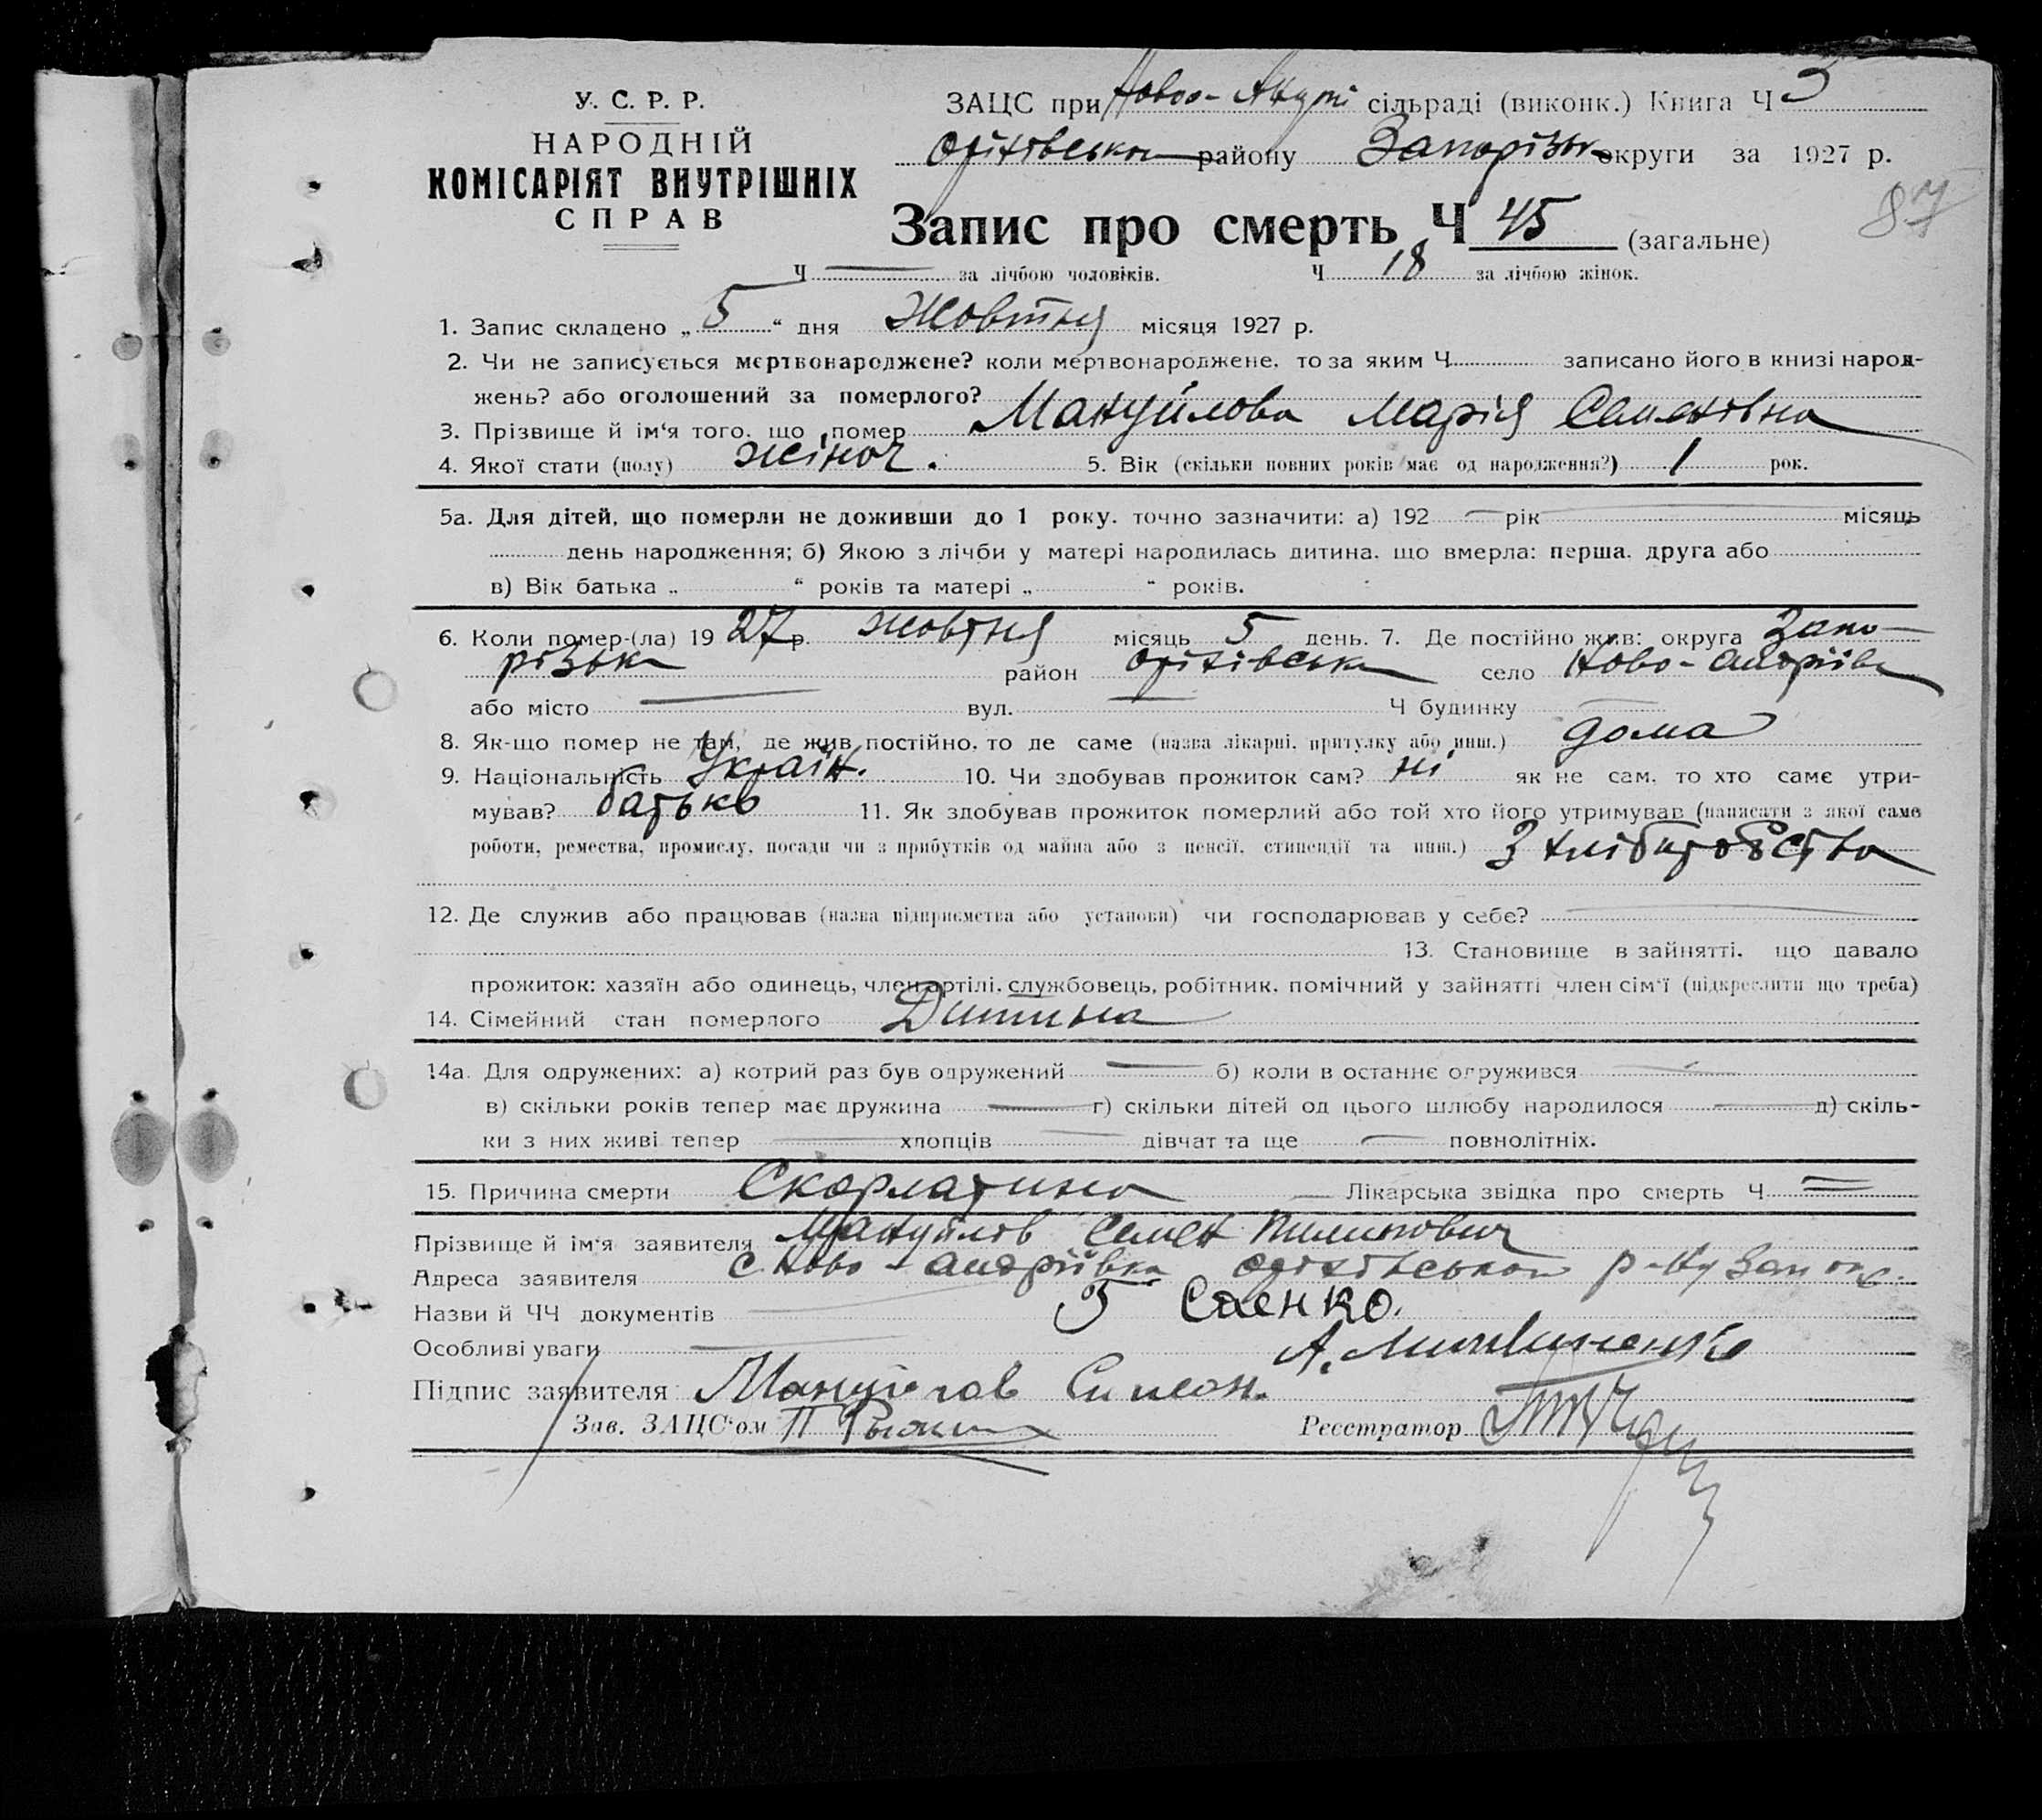 У. С. Р. Р.
НАРОДНІЙ
КОМІСАРІЯТ ВНУТРІШНІХ
СПРАВ
ЗАЦС при Ново- сільраді (виконк.) Книга Ч 3
Оріхівськом району Запорізьк округи за 1927 р.
87
Запис про смерть Ч 45 (загальне)
Ч — за лічбою чоловіків. Ч 18 за лічбою жінок.
1. Запис складено „ 5 “ дня Жовтня місяця 1927 р.
2. Чи не записується мертвонароджене? коли мертвонароджене, то за яким Ч записано його в книзі народ-
жень? або оголошений за померлого?
3. Прізвище й ім‘я того, що помер Мануйлова Марія Семенівна
4. Якої стати (полу) жіноч. 5. Вік (скільки повних років має од народження?) 1 рок.
5а. Для дітей, що померли не доживши до 1 року, точно зазначити: а) 192 — рік місяць
день народження; б) Якою з лічби у матері народилась дитина, що вмерла: перша, друга або
в) Вік батька „ “ років та матері „ “ років.
6. Коли помер-(ла) 19 27 р. жовтня місяць 5 день. 7. Де постійно жив: округа Запо-
різька район Оріхівська село Ново-Андріївка
або місто — вул. — Ч будинку
8. Як-що помер не там, де жив постійно, то де саме (назва лікарні, притулку або инш.) дома
9. Національність Україн. 10. Чи здобував прожиток сам? ні як не сам, то хто саме утри-
мував? батько 11. Як здобував прожиток померлий або той хто його утримував (написати з якої саме
роботи, ремества, промислу, посади чи з прибутків од майна або з пенсії, стипендії та инш.) З хліборобства
12. Де служив або працював (назва підприємства або установи) чи господарював у себе? —
13. Становище в зайнятті, що давало
прожиток: хазяїн або одинець, член артілі, службовець, робітник, помічний у зайнятті член сім‘ї (підкреслити що треба)
14. Сімейний стан померлого Дитина
14а. Для одружених: а) котрий раз був одружений — б) коли в останнє одружився —
в) скільки років тепер має дружина — г) скільки дітей од цього шлюбу народилося — д) скіль-
ки з них живі тепер — хлопців — дівчат та ще — повнолітніх.
15. Причина смерти Скарлатина — Лікарська звідка про смерть Ч =
Прізвище й ім‘я заявителя Мануйлов Семен Пилипович
Адреса заявителя с. Ново-Андріївка Оріхівського р-ну Запор.
Назви й ЧЧ документів — Саенко.
Особливі уваги — А.
Підпис заявителя Мануйлов Симеон.
Зав. ЗАЦС‘ом П Реєстратор